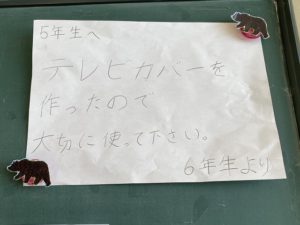 5年生へ
テレビカバーを
作ったので
大切に使って下さい。
6年生より